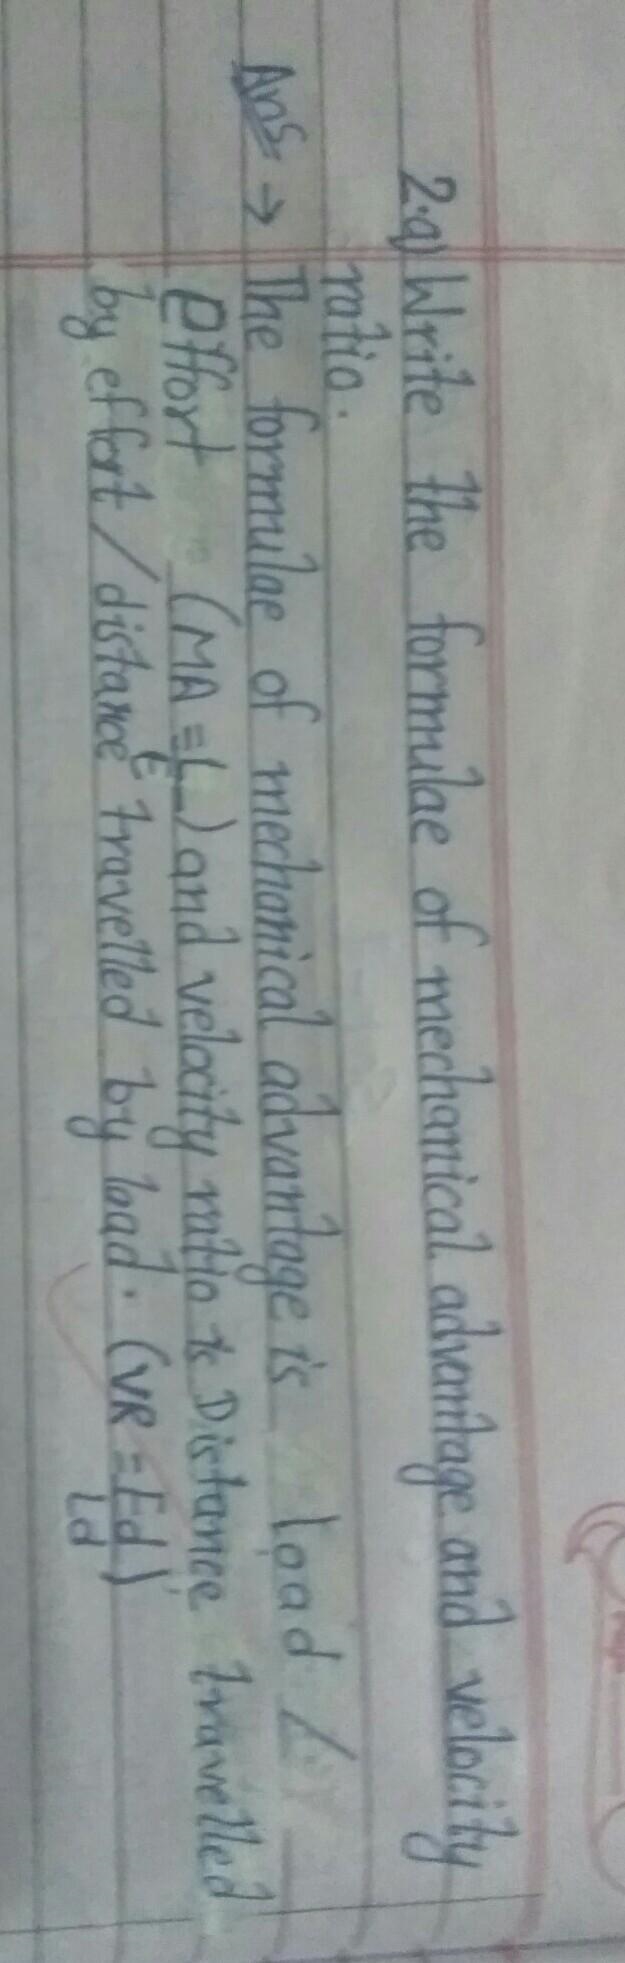 2.a) Write the formulae of mechanical advantage and velocity
ratio.
Ans → The formulae of mechanical advantage is load /
effort (MA = L/E) and velocity ratio is Distance travelled
by effort / distance travelled by load. (VR = Ed/Ld)